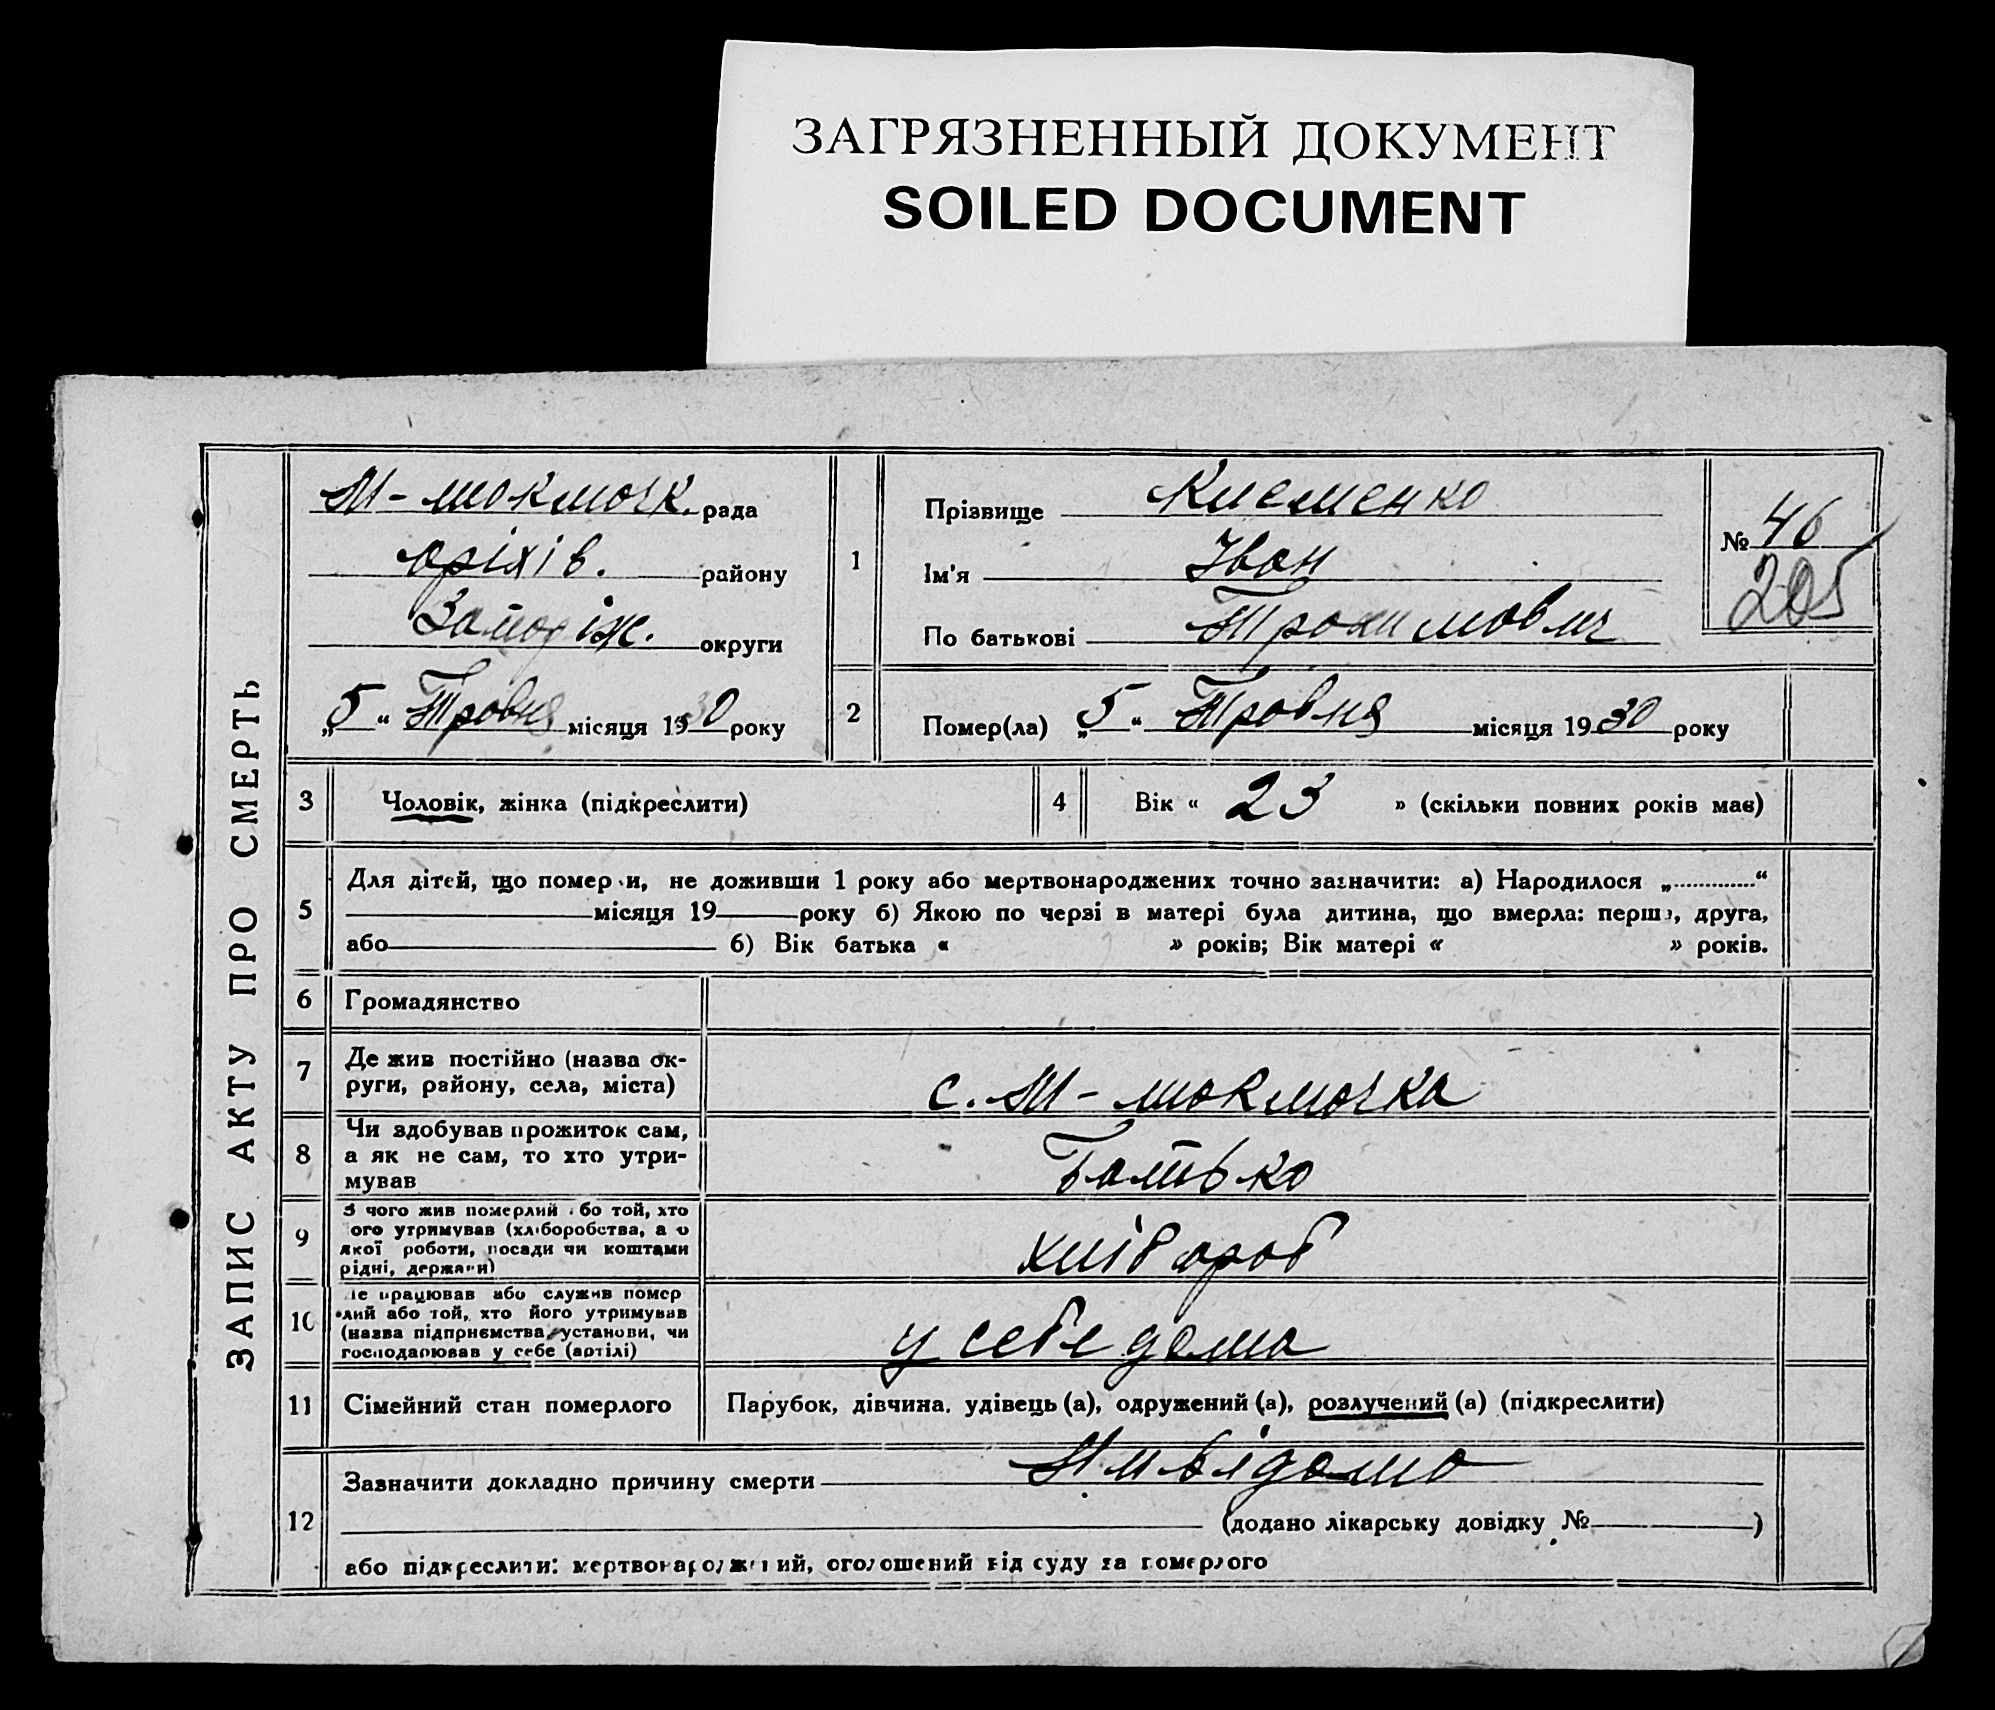 ЗАГРЯЗНЕННЫЙ ДОКУМЕНТ
SOILED DOCUMENT
ЗАПИС АКТУ ПРО СМЕРТЬ
М-токмочк. рада
оріхів. району
Запоріж. округи
„5“ Травня місяця 1930 року
1
Прізвище Клеменко
Ім'я Іван
По батькові Трохимович
№ 46
205
2 Помер(ла) „5“ Травня місяця 1930 року
3 Чоловік, жінка (підкреслити)
4 Вік « 23 » (скільки повних років має)
5 Для дітей, що померли, не доживши 1 року або мертвонароджених точно зазначити: а) Народилося „.............“
місяця 19 року б) Якою по черзі в матері була дитина, що вмерла: перша, друга,
або б) Вік батька « » років; Вік матері « » років.
6 Громадянство
7 Де жив постійно (назва ок-
руги, району, села, міста)
с. М-токмочка
8 Чи здобував прожиток сам,
а як не сам, то хто утри-
мував
Батько
9 З чого жив померлий або той, хто
його утримував (хліборобства, а о
якої роботи, посади чи коштами
рідні, держави)
хлібороб
10 Де працював або служив помер
лий або той, хто його утримував
(назва підприємства, установи, чи
господарював у себе (артілі)
у себе дома
11 Сімейний стан померлого
Парубок, дівчина, удівець (а), одружений (а), розлучений (а) (підкреслити)
12 Зазначити докладно причину смерти Нивідомо
(додано лікарську довідку № )
або підкреслити: мертвонароджений, оголошений від суду за померлого